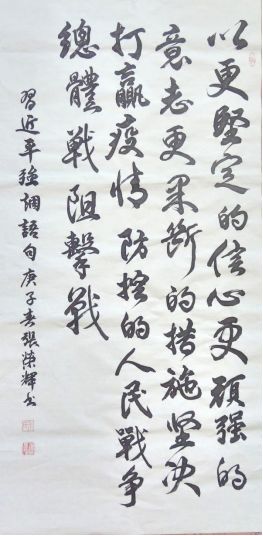 以更堅定的信心更頑强的
意志更果斷的措施坚决
打贏疫情防控的人民戰争
總體戰阻擊戰
習近平強調語句庚子春張榮輝書